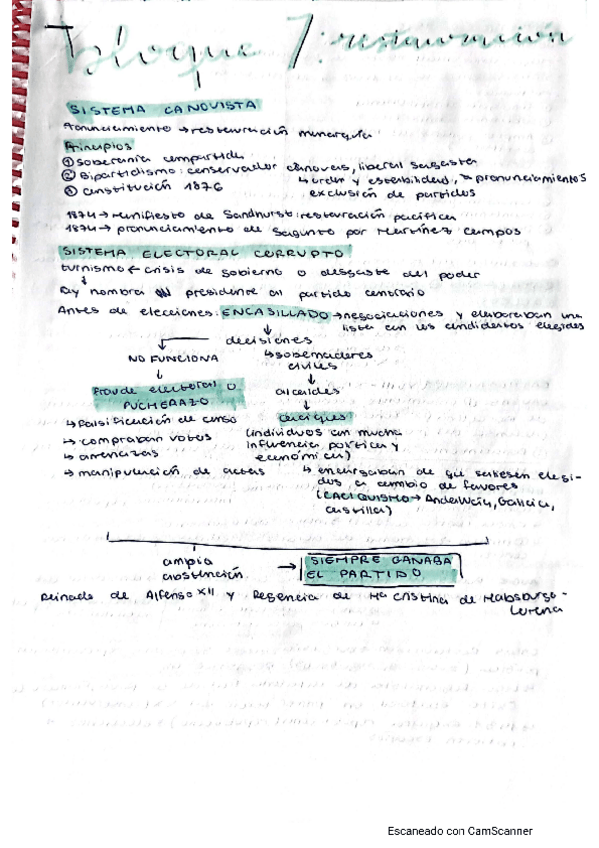 bloque 7: restauración
SISTEMA CANOVISTA
Pronunciamiento → restauración monarquía
Principios
① soberanía compartida
② Bipartidismo: conservador cánovas, liberal sagasta
↳ orden y estabilidad, pronunciamientos
③ constitución 1876
exclusión de partidos
1874 → manifiesto de Sandhurst: restauración pacífica
1874 → pronunciamiento de Sagunto por Martínez Campos
SISTEMA ELECTORAL CORRUPTO
turnismo ← crisis de gobierno o desgaste del poder
Rey nombra presidente al partido contrario
Antes de elecciones: ENCASILLADO → negociaciones y elaboraban una
lista con los candidatos elegidos
decisiones
NO FUNCIONA
↳ gobernadores
civiles
Fraude electoral o
PUCHERAZO
alcaldes
caciques
↳ Falsificación de censo
↳ compraban votos
↳ amenazas
↳ manipulación de actas
(individuos con mucha
influencia política y
económica)
↳ encargaban de que saliesen elegi-
dos a cambio de favores
(CACIQUISMO → Andalucía, Galicia,
Castilla)
amplia
abstención
→ SIEMPRE GANABA
EL PARTIDO
Reinado de Alfonso XII y Regencia de Mª Cristina de Habsburgo-
Lorena
Escaneado con CamScanner